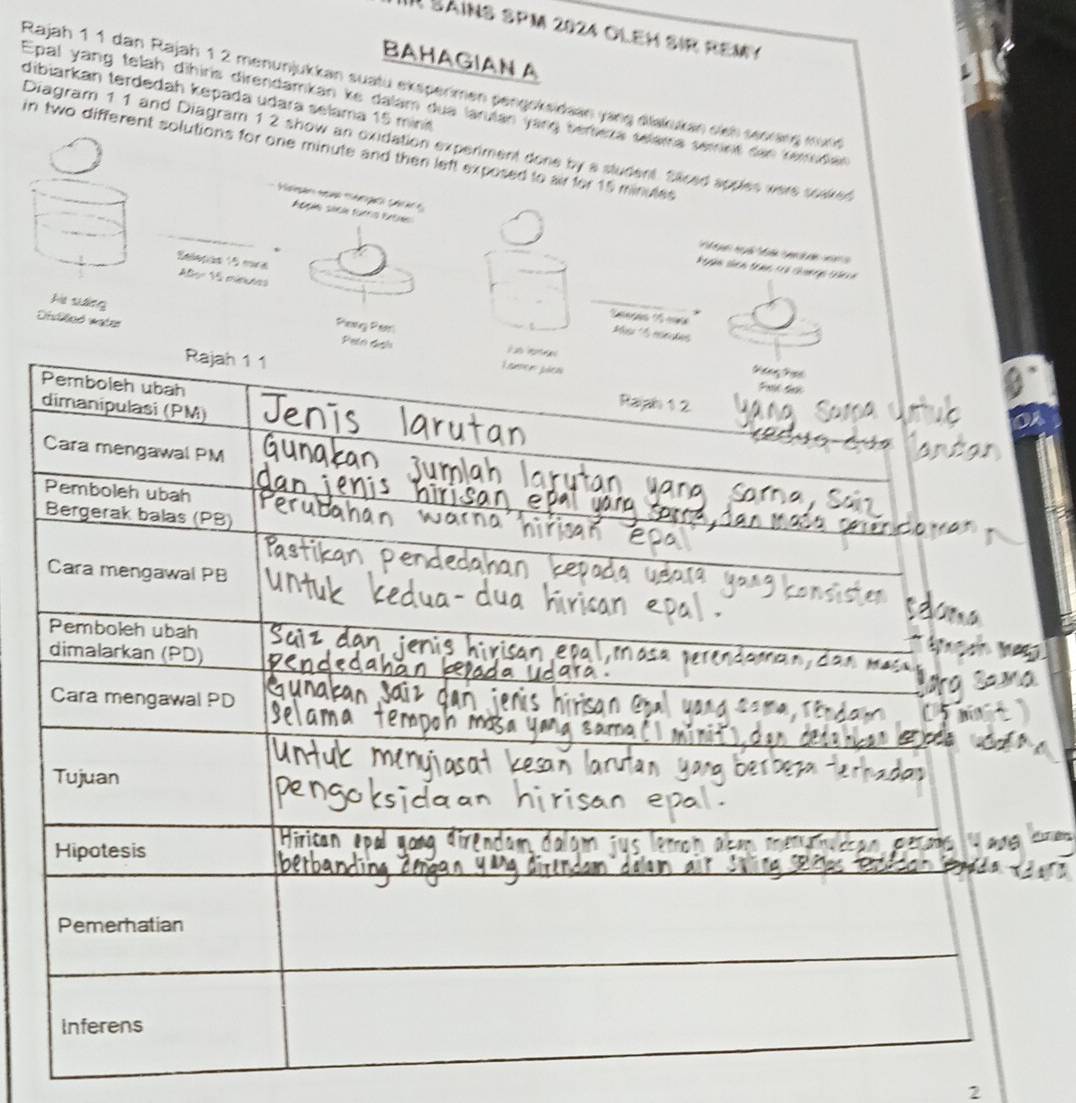 SAINS SPM 2024 OLEH SIR REMY
BAHAGIAN A
Rajah 1 1 dan Rajah 1 2 menunjukkan suatu eksperimen pengoksidaan yang dilakukan oleh seorang murid
Epal yang telah dihiris direndamkan ke dalam dua larutan yang berbeza selama seminit dan kemudian
dibiarkan terdedah kepada udara selama 15 minit
Diagram 1 1 and Diagram 1 2 show an oxidation experiment done by a student. Sliced apples were soaked
in two different solutions for one minute and then left exposed to air for 15 minutes
Hirisan epal menjadi perang
Apple slice turns brown
Selepas 15 minit
After 15 minutes
Air suling
Distilled water
Piring Petri
Petri dish
Rajah 1 1
Apple slice does not change colour
Selepas 15 minit
After 15 minutes
Jus lemon
Lemon juice
Piring Petri
Petri dish
Rajah 1 2
Pemboleh ubah
dimanipulasi (PM)
Jenis larutan
yang sama untuk
kedua-dua larutan
Cara mengawal PM
Gunakan jumlah larutan yang sama, saiz
dan jenis hirisan epal yang sama, dan masa perendaman
Pemboleh ubah
Bergerak balas (PB)
Perubahan warna hirisan epal
Cara mengawal PB
Pastikan pendedahan kepada udara yang konsisten selama
untuk kedua-dua hirisan epal.
tempoh masa
yang sama
(15 minit)
Pemboleh ubah
dimalarkan (PD)
Saiz dan jenis hirisan epal, masa perendaman, dan masa
pendedahan kepada udara.
Cara mengawal PD
Gunakan saiz dan jenis hirisan epal yang sama, rendam
selama tempoh masa yang sama (1 minit), dan dedahkan kepada udara
Tujuan
Untuk menyiasat kesan larutan yang berbeza terhadap
pengoksidaan hirisan epal.
Hipotesis
Hirisan epal yang direndam dalam jus lemon akan menunjukkan perang yang kurang
berbanding dengan yang direndam dalam air suling selepas terdedah kepada udara
Pemerhatian
Inferens
2